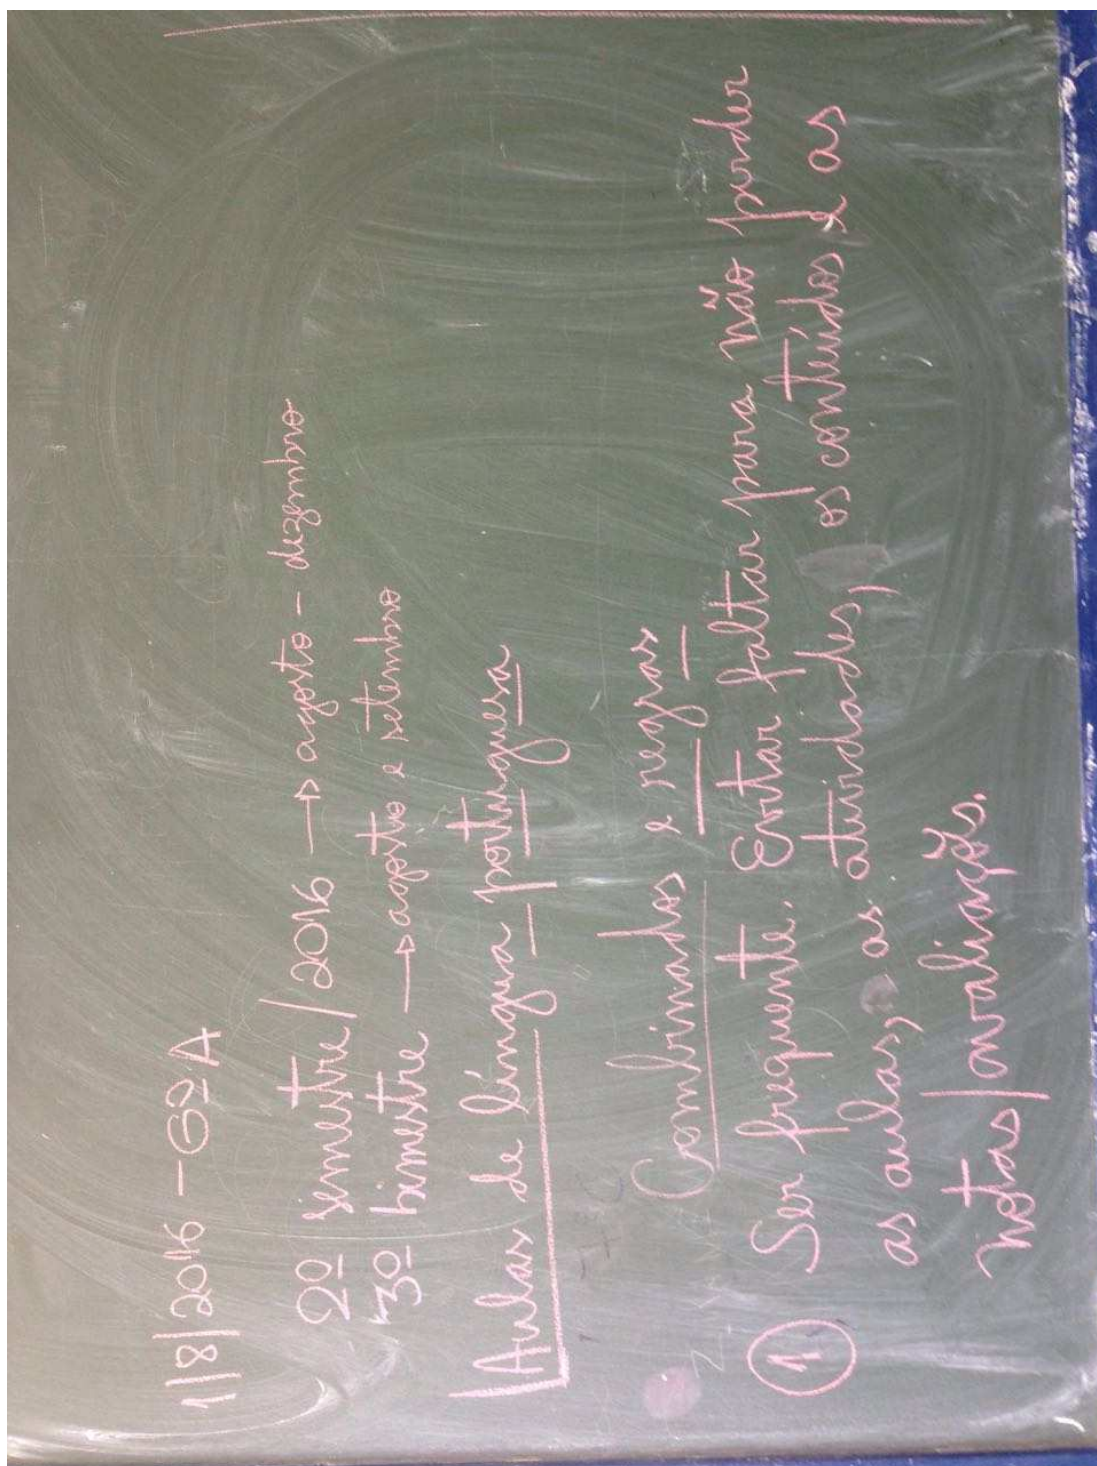 1/8/2016 - G2A
2º semestre/2016 → agosto - dezembro
3º bimestre → agosto e setembro
Aulas de língua portuguesa
Combinados e regras
1 Ser frequente. Evitar faltar para não perder
as aulas, as atividades, os conteúdos e as
notas/avaliações.